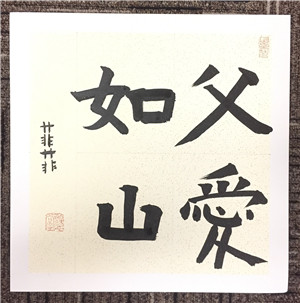 父愛
如山
菲菲